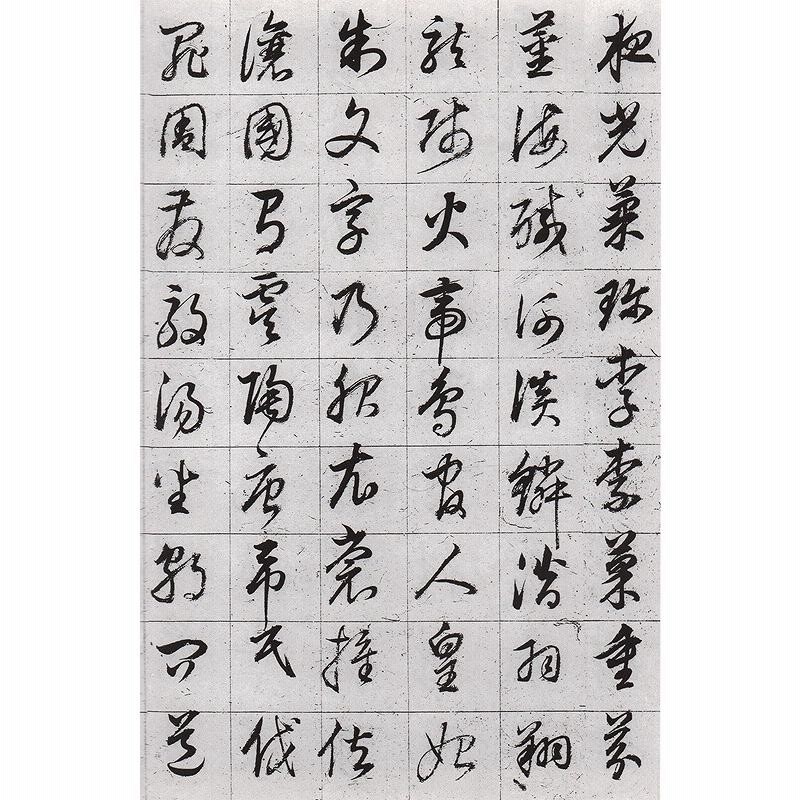 夜光菓珍李柰菜重芥
薑海醎河淡鱗潛羽翔
龍師火帝鳥官人皇始
制文字乃服衣裳推位
讓國有虞陶唐弔民伐
罪周發殷湯坐朝問道